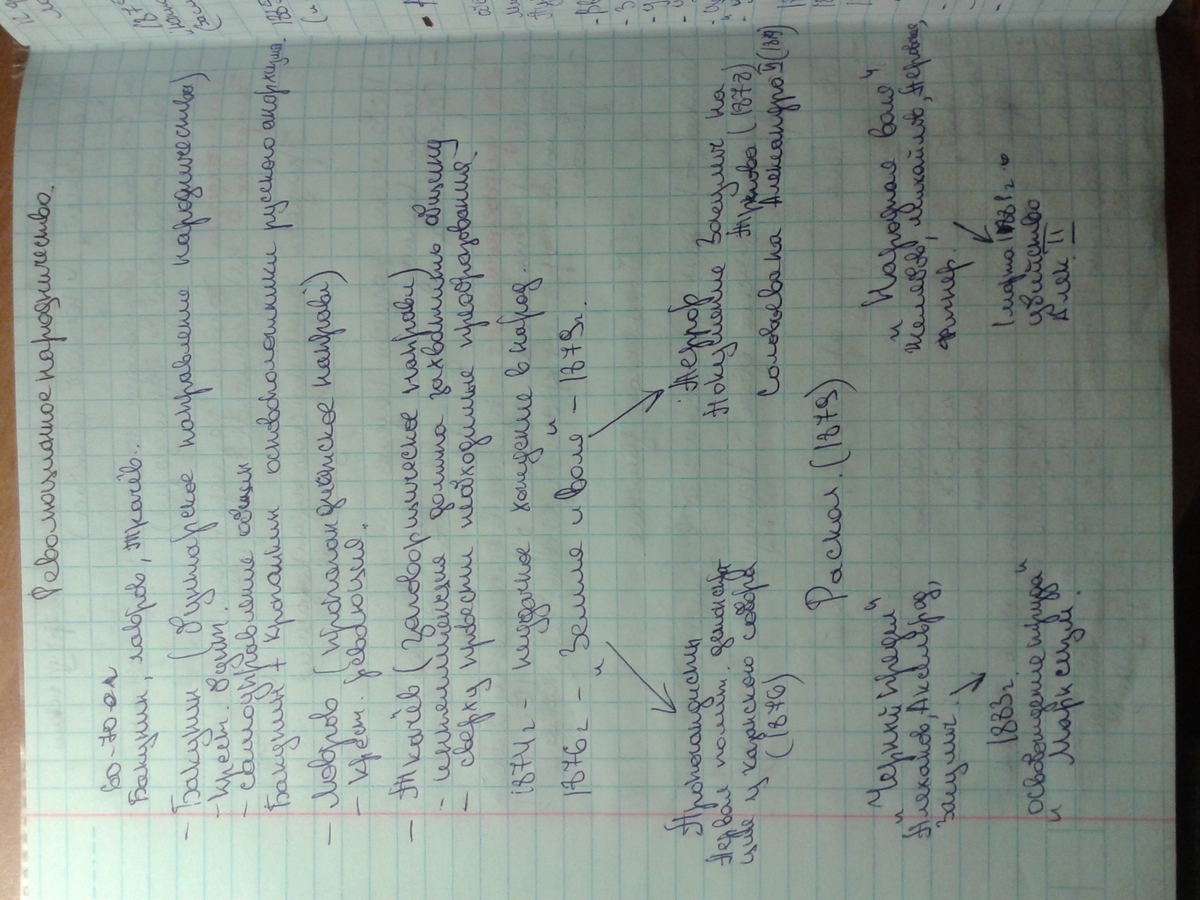 Революционное народничество.
60-70-ые
Бакунин, Лавров, Ткачёв.
— Бакунин (бунтарское направление народничества)
- Крест. бунт.
- самоуправление общин
Бакунин + Кропоткин основоположники русского анархизма.
— Лавров (пропагандистское направл)
- крест. революция.
— Ткачёв (заговорщическое направл)
- интеллигенция должна захватить общину
- сверху провести необходимые преобразования.
1874г - неудачное хождение в народ.
1876г - "Земля и воля" - 1879г.
Пропагандисты
Первая полит. демонстра
ция у казанского собора
(1876)
Террор
Покушение Засулич на
Трепова (1878)
Соловьева на Александра II (1879)
Раскол. (1879)
"Черный передел"
Плеханов, Аксельрод,
Засулич.
1883г.
"освобождение труда"
Марксизм.
"Народная воля"
Желябов, Михайлов, Перовская,
Фигнер.
1 марта 1881г.
убийство
Алек II